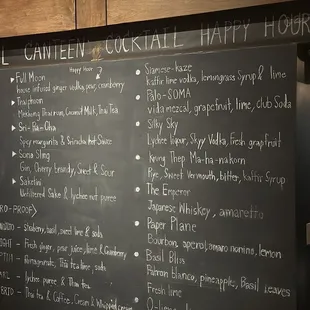 L CANTEEN - COCKTAIL HAPPY HOUR
Happy Hour
Full Moon
house infused ginger vodka, pear, cranberry
Mekhong Thai rum, Coconut Milk, Thai Tea
Sri-Ra-Cha
Spicy margarita & Sriracha hot sauce
Soma Sling
Gin, Cherry brandy, Sweet & Sour
Saketini
Unfiltered Sake & lychee nut puree
RO-PROOF)
- Strawberry, basil, sweet lime & soda
IGHT - Fresh ginger, pear juice, lime & Cranberry
- Pomegranate, Thai tea, lime, soda
- lychee puree & Thai tea
BRID - Thai tea & Coffee, Cream & Whipped cream
Siamese-kaze
Kaffir lime vodka, lemongrass Syrup & lime
Palo-SOMA
vida mezcal, grapefruit, lime, club Soda
Silky Sky
Lychee liquor, Skyy Vodka, fresh grapefruit
Krung Thep Ma-ha-nakorn
Rye, Sweet Vermouth, bitter, kaffir Syrup
The Emperor
Japanese Whiskey, amaretto
Paper Plane
Bourbon, aperol, amaro nonino, lemon
Basil Bliss
blanco, pineapple, Basil leaves
Fresh lime